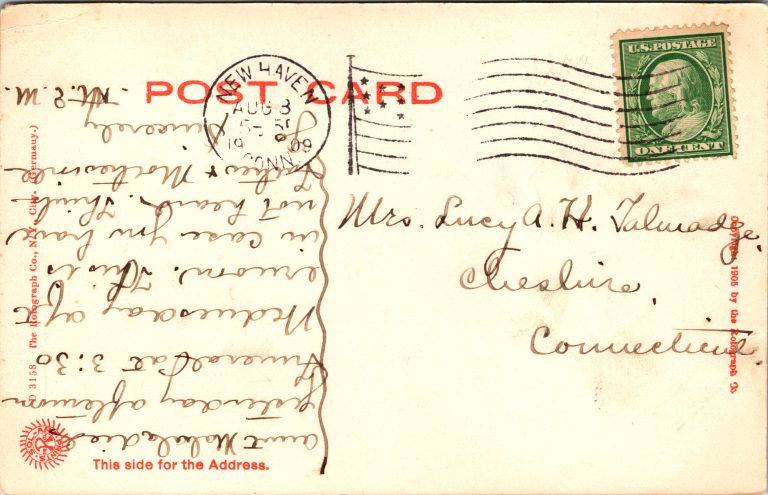 POST CARD
NEW HAVEN
AUG 3
1909
CONN.
U.S. POSTAGE
ONE CENT
Mrs. Lucy A. H. Talmadge,
Cheshire,
Connecticut.
Aunt died
yesterday afternoon
Funeral at 3:30
Wednesday aft
ernoon. This is
in case you have
not heard.
Father &
Sincerely
D 3158 The Rotograph Co., N.Y. City. (Germany.)
Copyright, 1905 by the Rotograph Co.
This side for the Address.